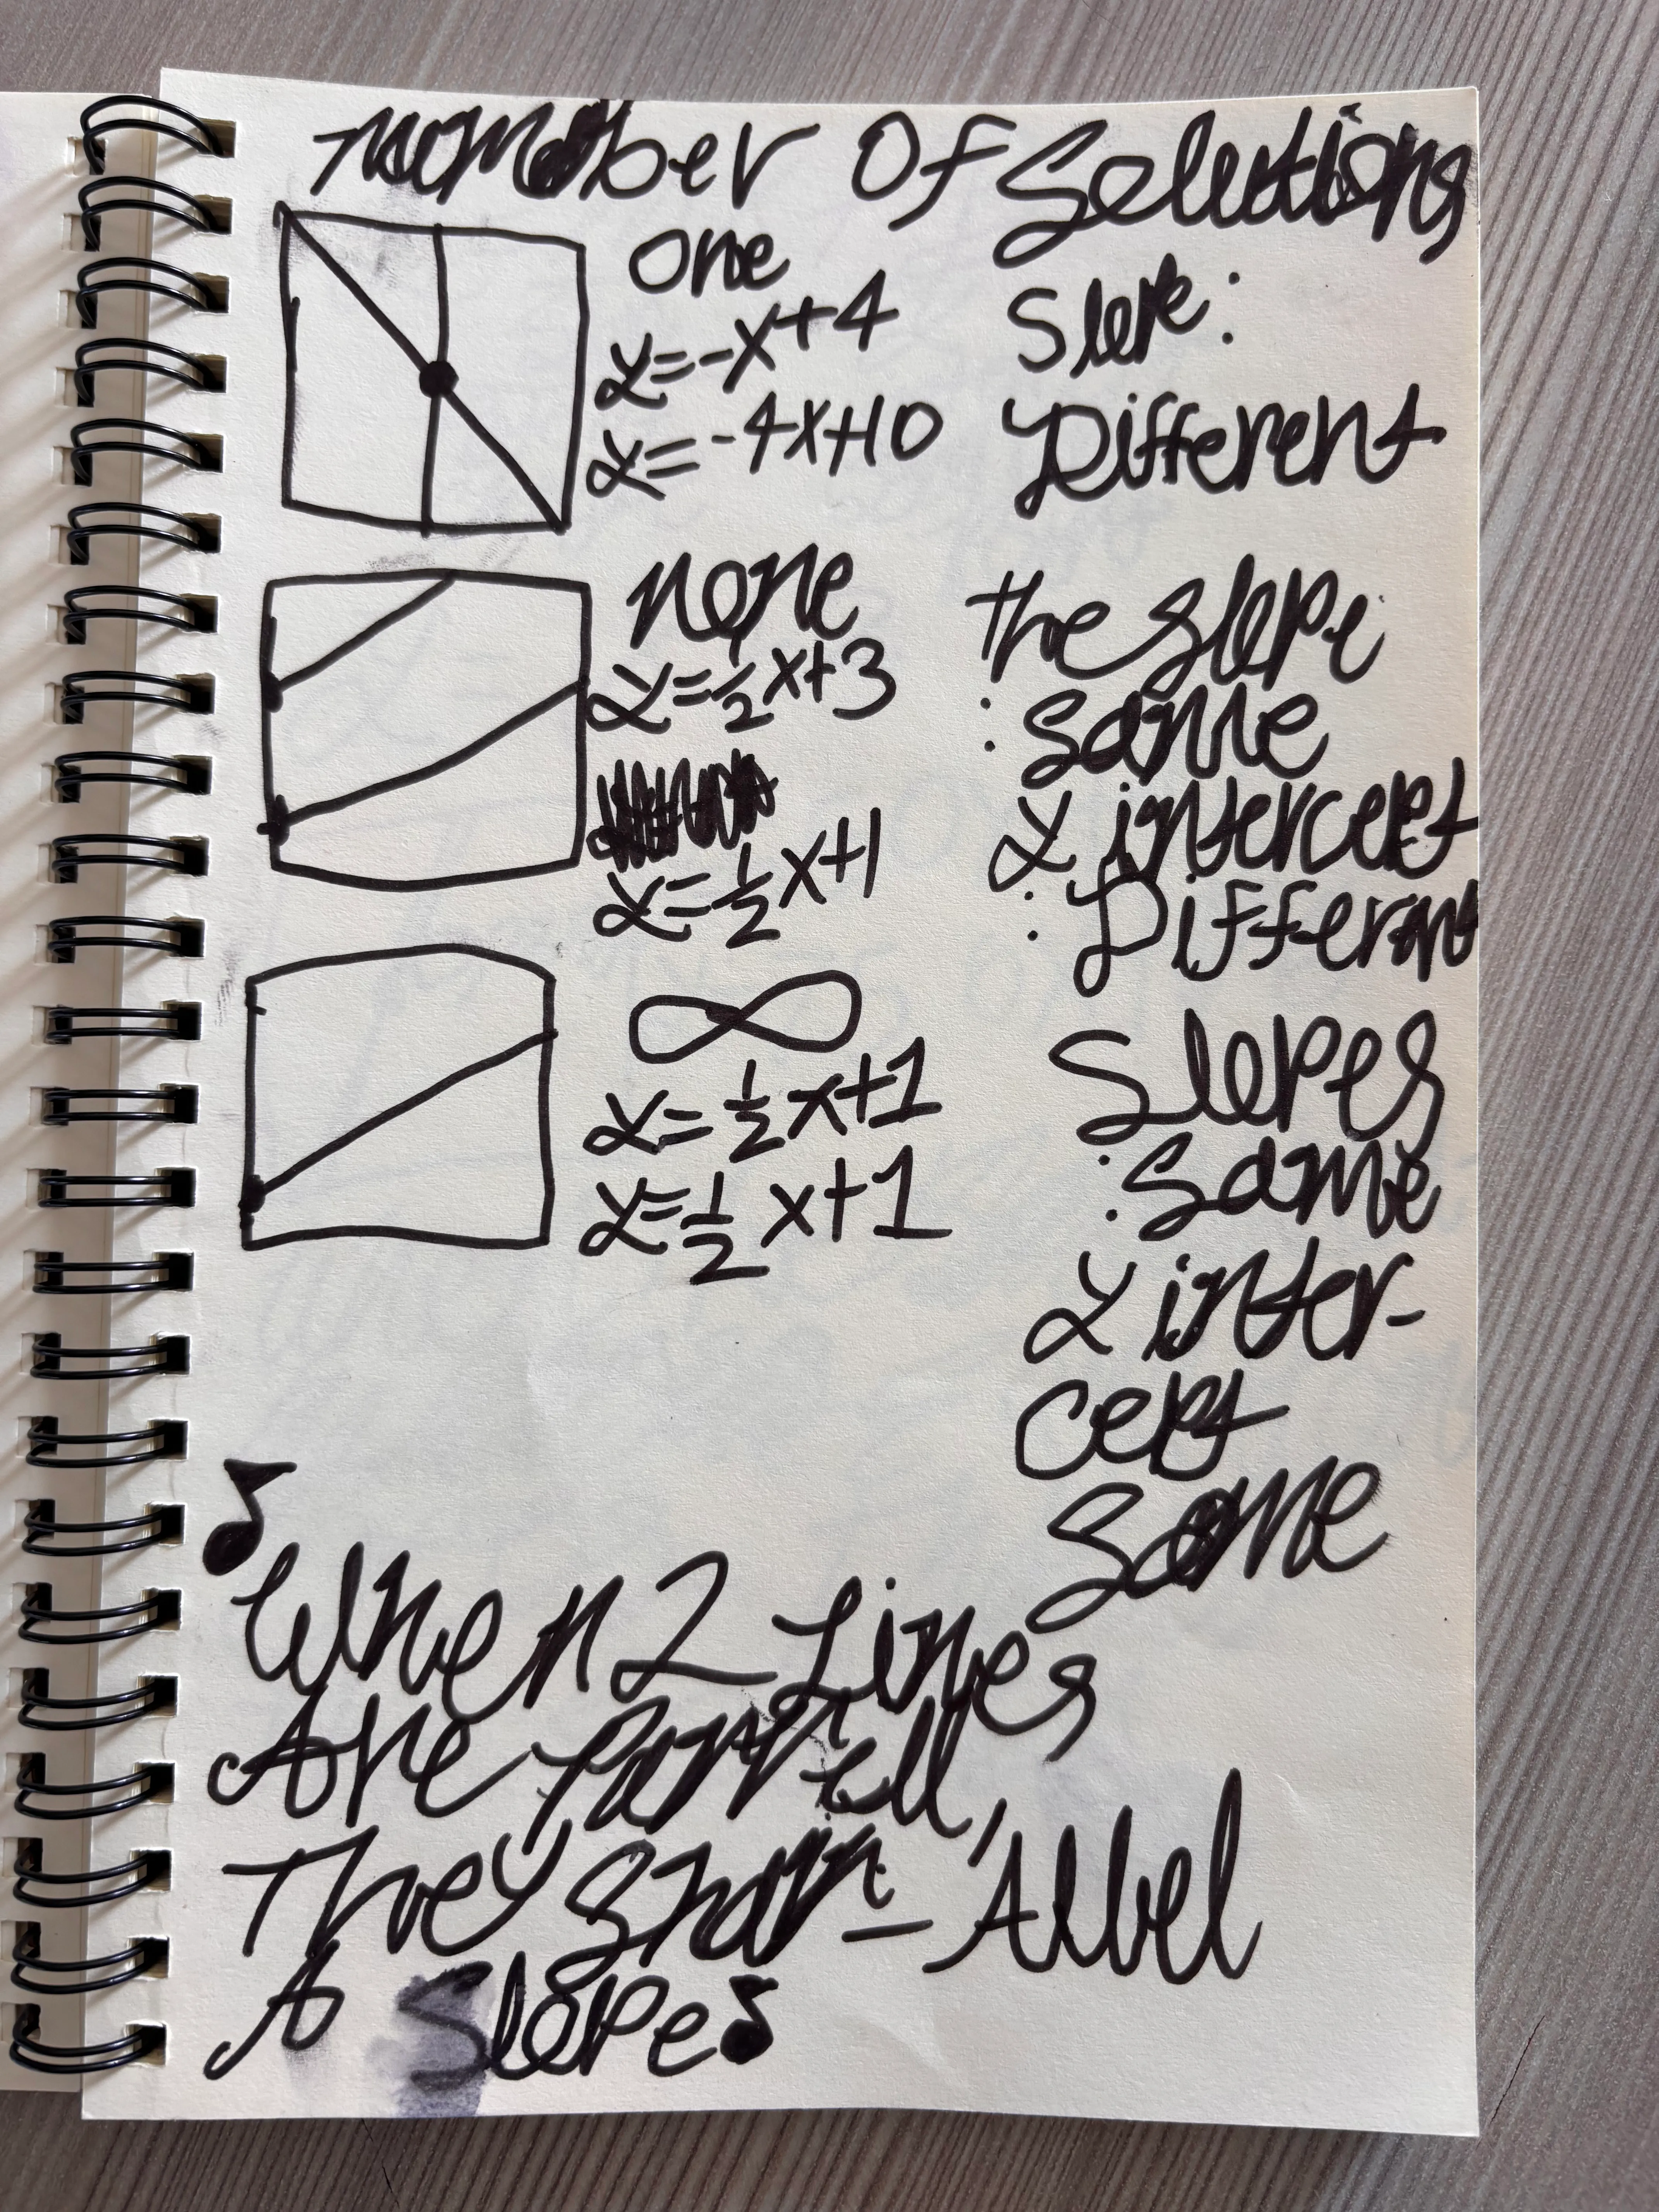 Number Of Solutions
One
y=-x+4
y=-4x+10
Slope:
Different
none
y=1/2x+3
y=1/2x+1
the slope
: Same
y intercept
: Different
∞
y=1/2x+1
y=1/2x+1
Slopes
: Same
y inter-
cept
Same
♪
When 2 Lines
Are
They
A Slope♪